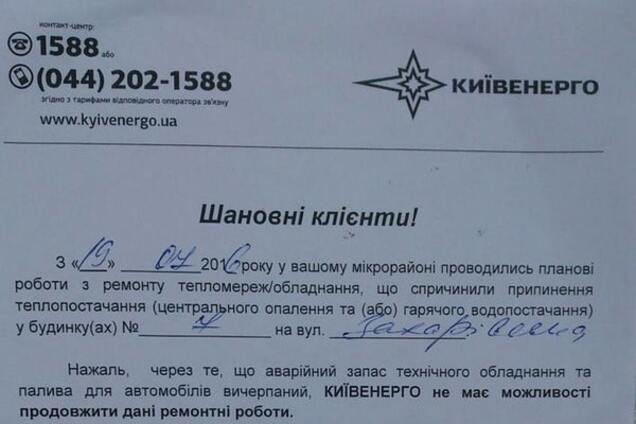 контакт-центр:
1588 або
(044) 202-1588
згідно з тарифами відповідного оператора зв'язку
www.kyivenergo.ua
КИЇВЕНЕРГО
Шановні клієнти!
З «19» 07 2016 року у вашому мікрорайоні проводились планові
роботи з ремонту тепломереж/обладнання, що спричинили припинення
теплопостачання (центрального опалення та (або) гарячого водопостачання)
у будинку(ах) № 7 на вул.
Нажаль, через те, що аварійний запас технічного обладнання та
палива для автомобілів вичерпаний, КИЇВЕНЕРГО не має можливості
продовжити дані ремонтні роботи.